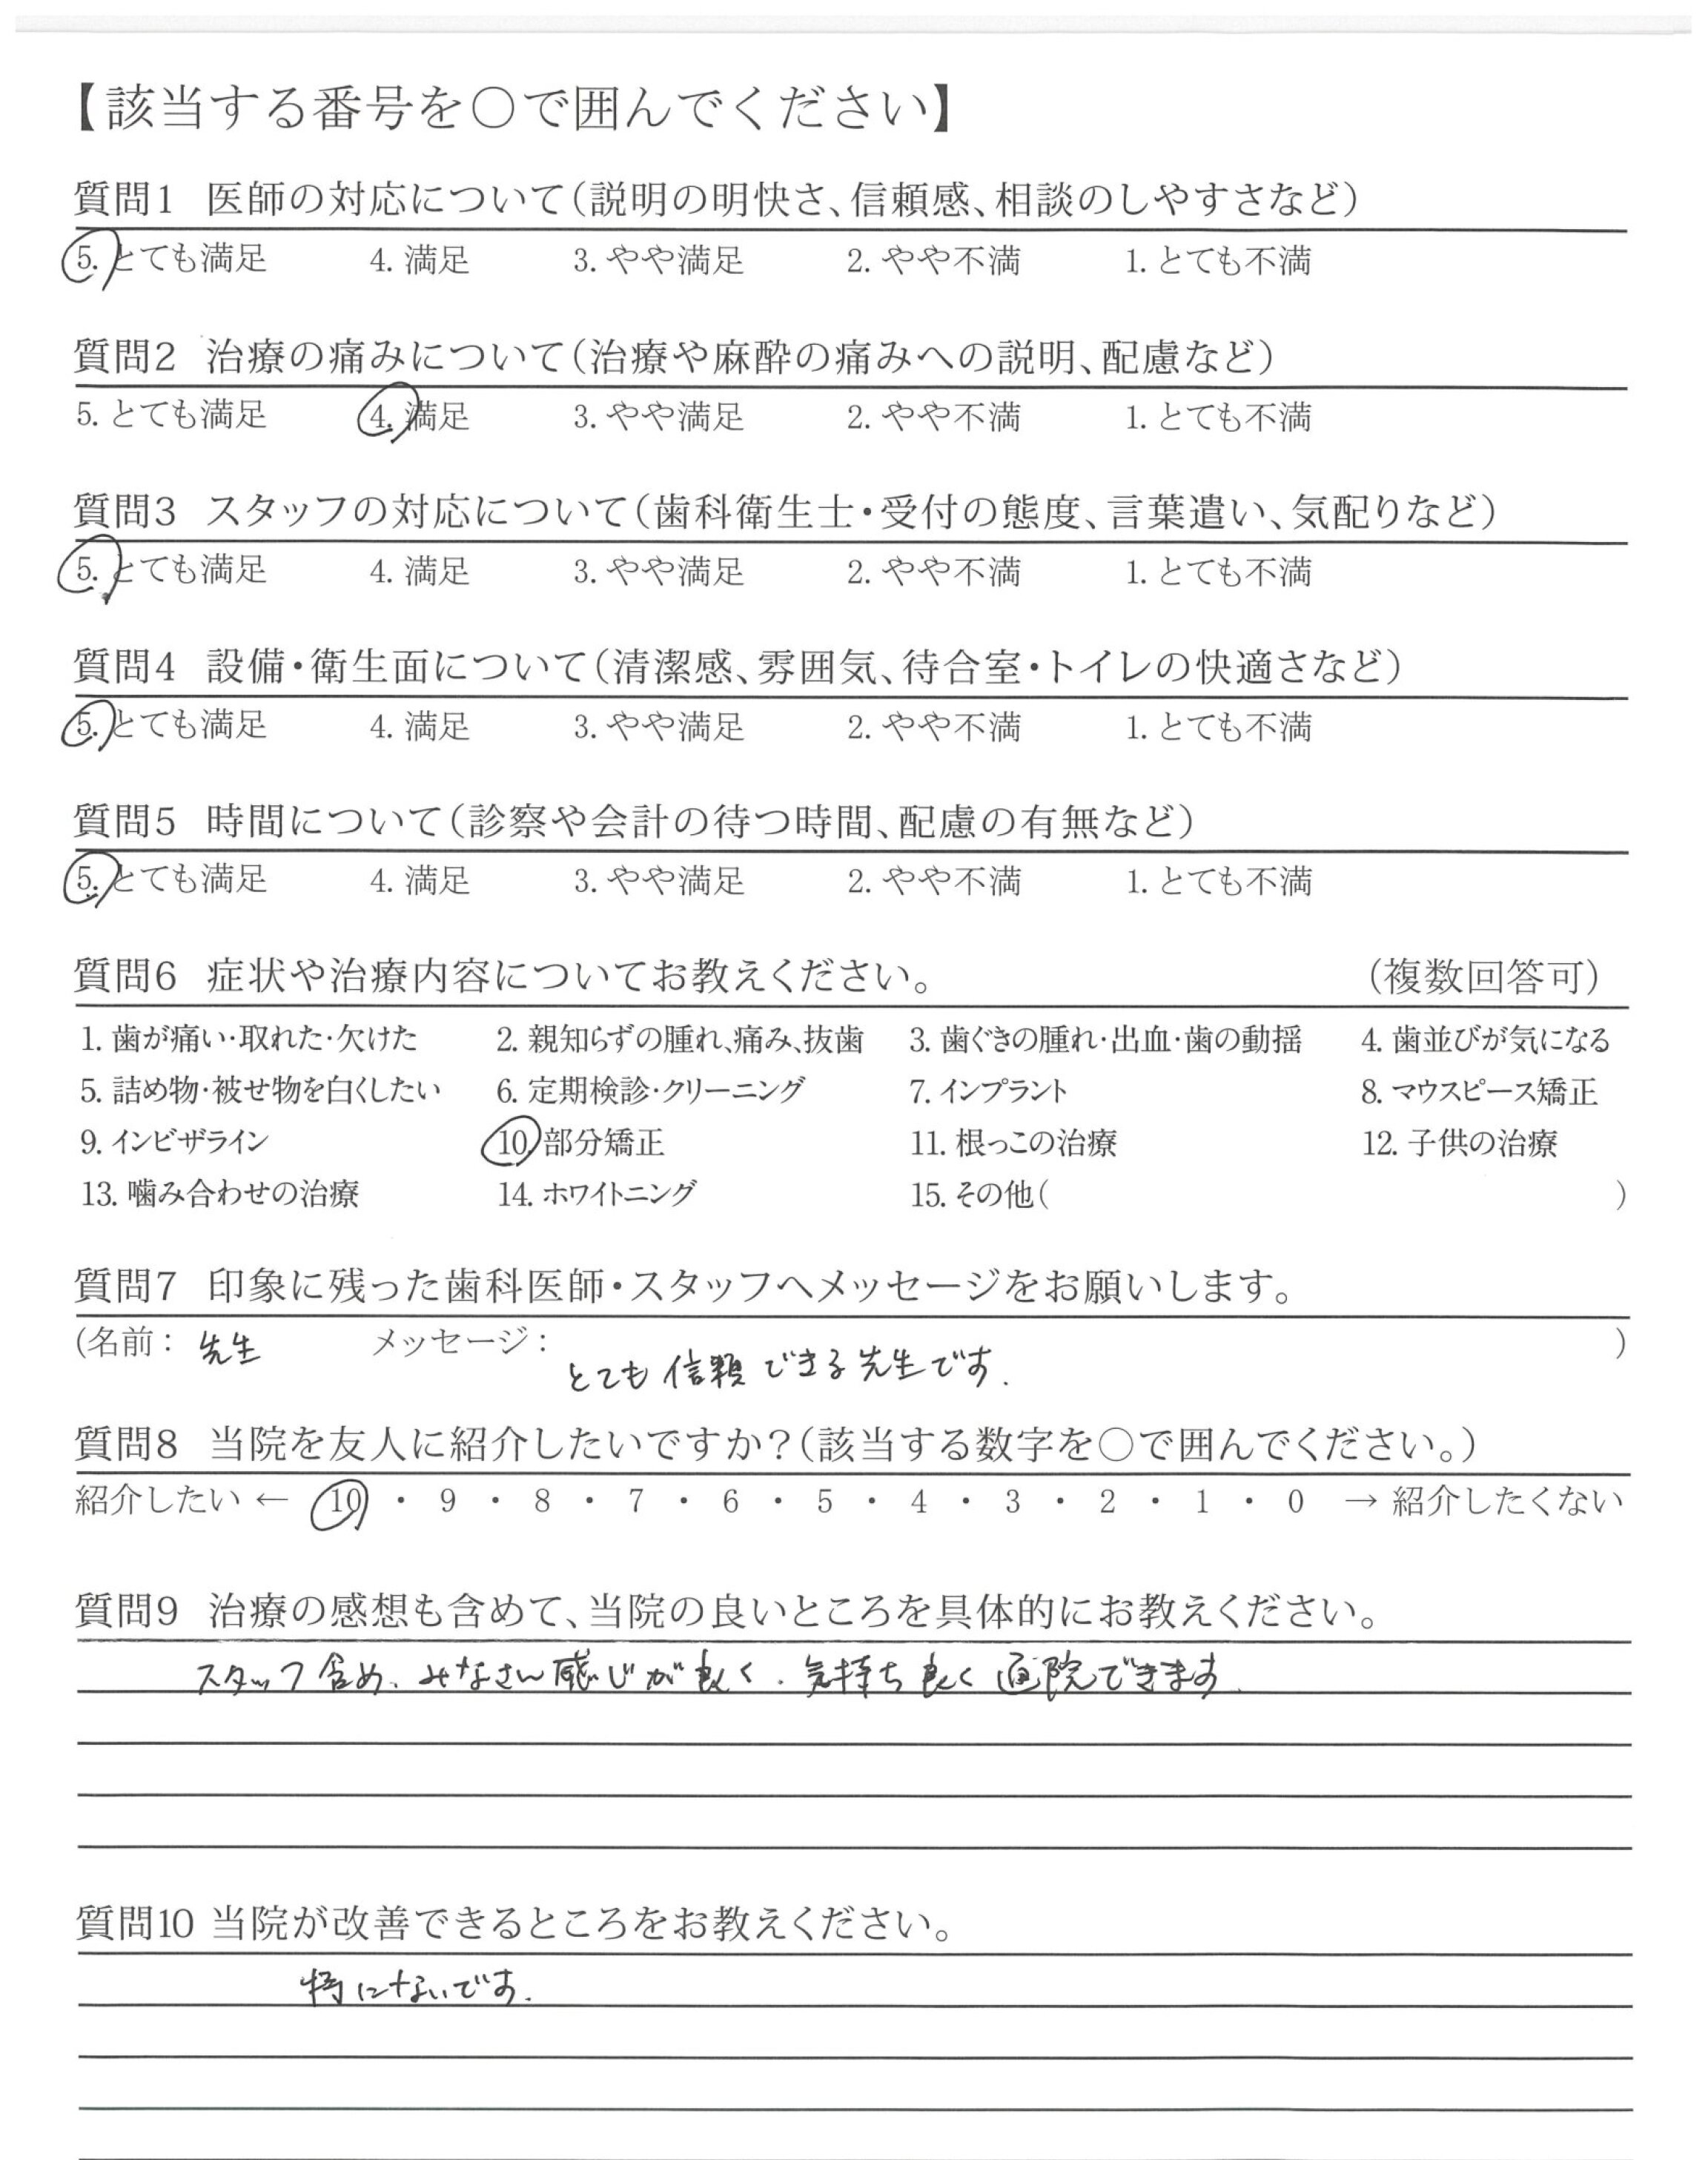 【該当する番号を○で囲んでください】
質問1 医師の対応について(説明の明快さ、信頼感、相談のしやすさなど)
5. とても満足 4. 満足 3. やや満足 2. やや不満 1. とても不満
質問2 治療の痛みについて(治療や麻酔の痛みへの説明、配慮など)
5. とても満足 4. 満足 3. やや満足 2. やや不満 1. とても不満
質問3 スタッフの対応について(歯科衛生士・受付の態度、言葉遣い、気配りなど)
5. とても満足 4. 満足 3. やや満足 2. やや不満 1. とても不満
質問4 設備・衛生面について(清潔感、雰囲気、待合室・トイレの快適さなど)
5. とても満足 4. 満足 3. やや満足 2. やや不満 1. とても不満
質問5 時間について(診察や会計の待つ時間、配慮の有無など)
5. とても満足 4. 満足 3. やや満足 2. やや不満 1. とても不満
質問6 症状や治療内容についてお教えください。 (複数回答可)
1. 歯が痛い・取れた・欠けた 2. 親知らずの腫れ、痛み、抜歯 3. 歯ぐきの腫れ・出血・歯の動揺 4. 歯並びが気になる
5. 詰め物・被せ物を白くしたい 6. 定期検診・クリーニング 7. インプラント 8. マウスピース矯正
9. インビザライン 10. 部分矯正 11. 根っこの治療 12. 子供の治療
13. 噛み合わせの治療 14. ホワイトニング 15. その他( )
質問7 印象に残った歯科医師・スタッフへメッセージをお願いします。
(名前: 先生 メッセージ: )
とても信頼できる先生です.
質問8 当院を友人に紹介したいですか?(該当する数字を○で囲んでください。)
紹介したい ← 10 ・ 9 ・ 8 ・ 7 ・ 6 ・ 5 ・ 4 ・ 3 ・ 2 ・ 1 ・ 0 → 紹介したくない
質問9 治療の感想も含めて、当院の良いところを具体的にお教えください。
スタッフ含め、みなさん感じが良く、気持ち良く通院できます.
質問10 当院が改善できるところをお教えください。
特にないです.